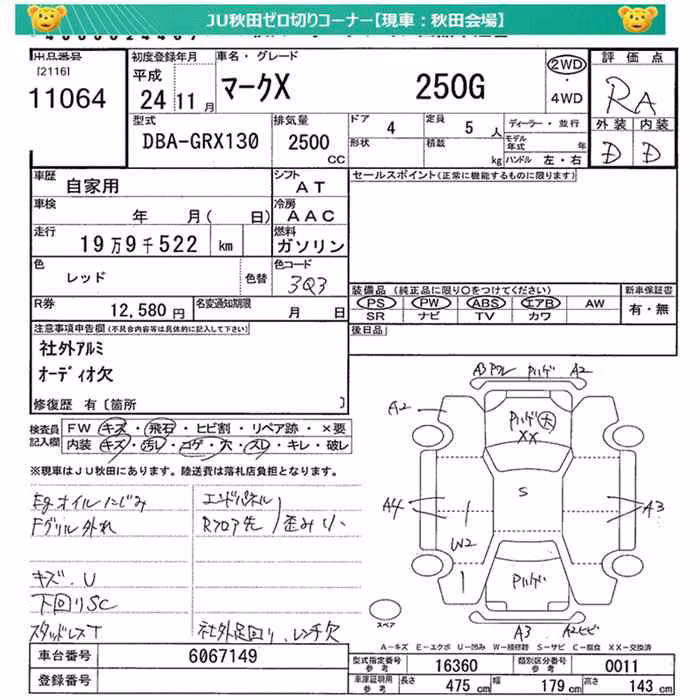 JU秋田ゼロ切りコーナー【現車：秋田会場】
出品番号
[2116]
11064
初度登録年月
平成
24年11月
車名・グレード
マークX 250G
2WD
・
4WD
評価点
RA
外装 内装
D D
型式
DBA-GRX130
排気量
2500
CC
ドア 4
定員 5 人
形状
積載 kg
ディーラー・並行
モデル年式 年
ハンドル 左・右
車歴
自家用
シフト
AT
車検
年 月( 日)
冷房
AAC
走行
19万9千522 km
燃料
ガソリン
色
レッド
色替
色コード
3Q3
R券
12,580円
名変通知期限
月 日
セールスポイント(正常に機能するものに限ります)
装備品(純正品に限り〇をつけてください)
PS PW ABS エアB AW
SR ナビ TV カワ
新車保証書
有・無
後日品
注意事項申告欄(不具合内容等は具体的に記入して下さい)
社外アルミ
オーディオ欠
修復歴 有〔箇所 〕
検査員
記入欄
FW キズ・飛石・ヒビ割・リペア跡・×要
内装 キズ・汚レ・コゲ・穴・スレ・キレ・破レ
※現車はJU秋田にあります。陸送費は落札店負担となります。
Egオイルにじみ
Fグリル外れ
キズ.U
下回りSC
スタッドレスT
エンドパネル
Rフロア先
歪み小
社外足回り.レンチ欠
A3 アワレ A2
A2
大
XX
S
A4
A3
W2
A3
A2ヒビ
スペア
A－キズ E－エクボ U－凹み W－補修跡 S－サビ C－腐食 XX－交換済
車台番号
6067149
型式指定番号
参考
16360
類別区分番号
参考
0011
車庫証明用
参考
長さ 475cm
幅 179cm
高さ 143cm